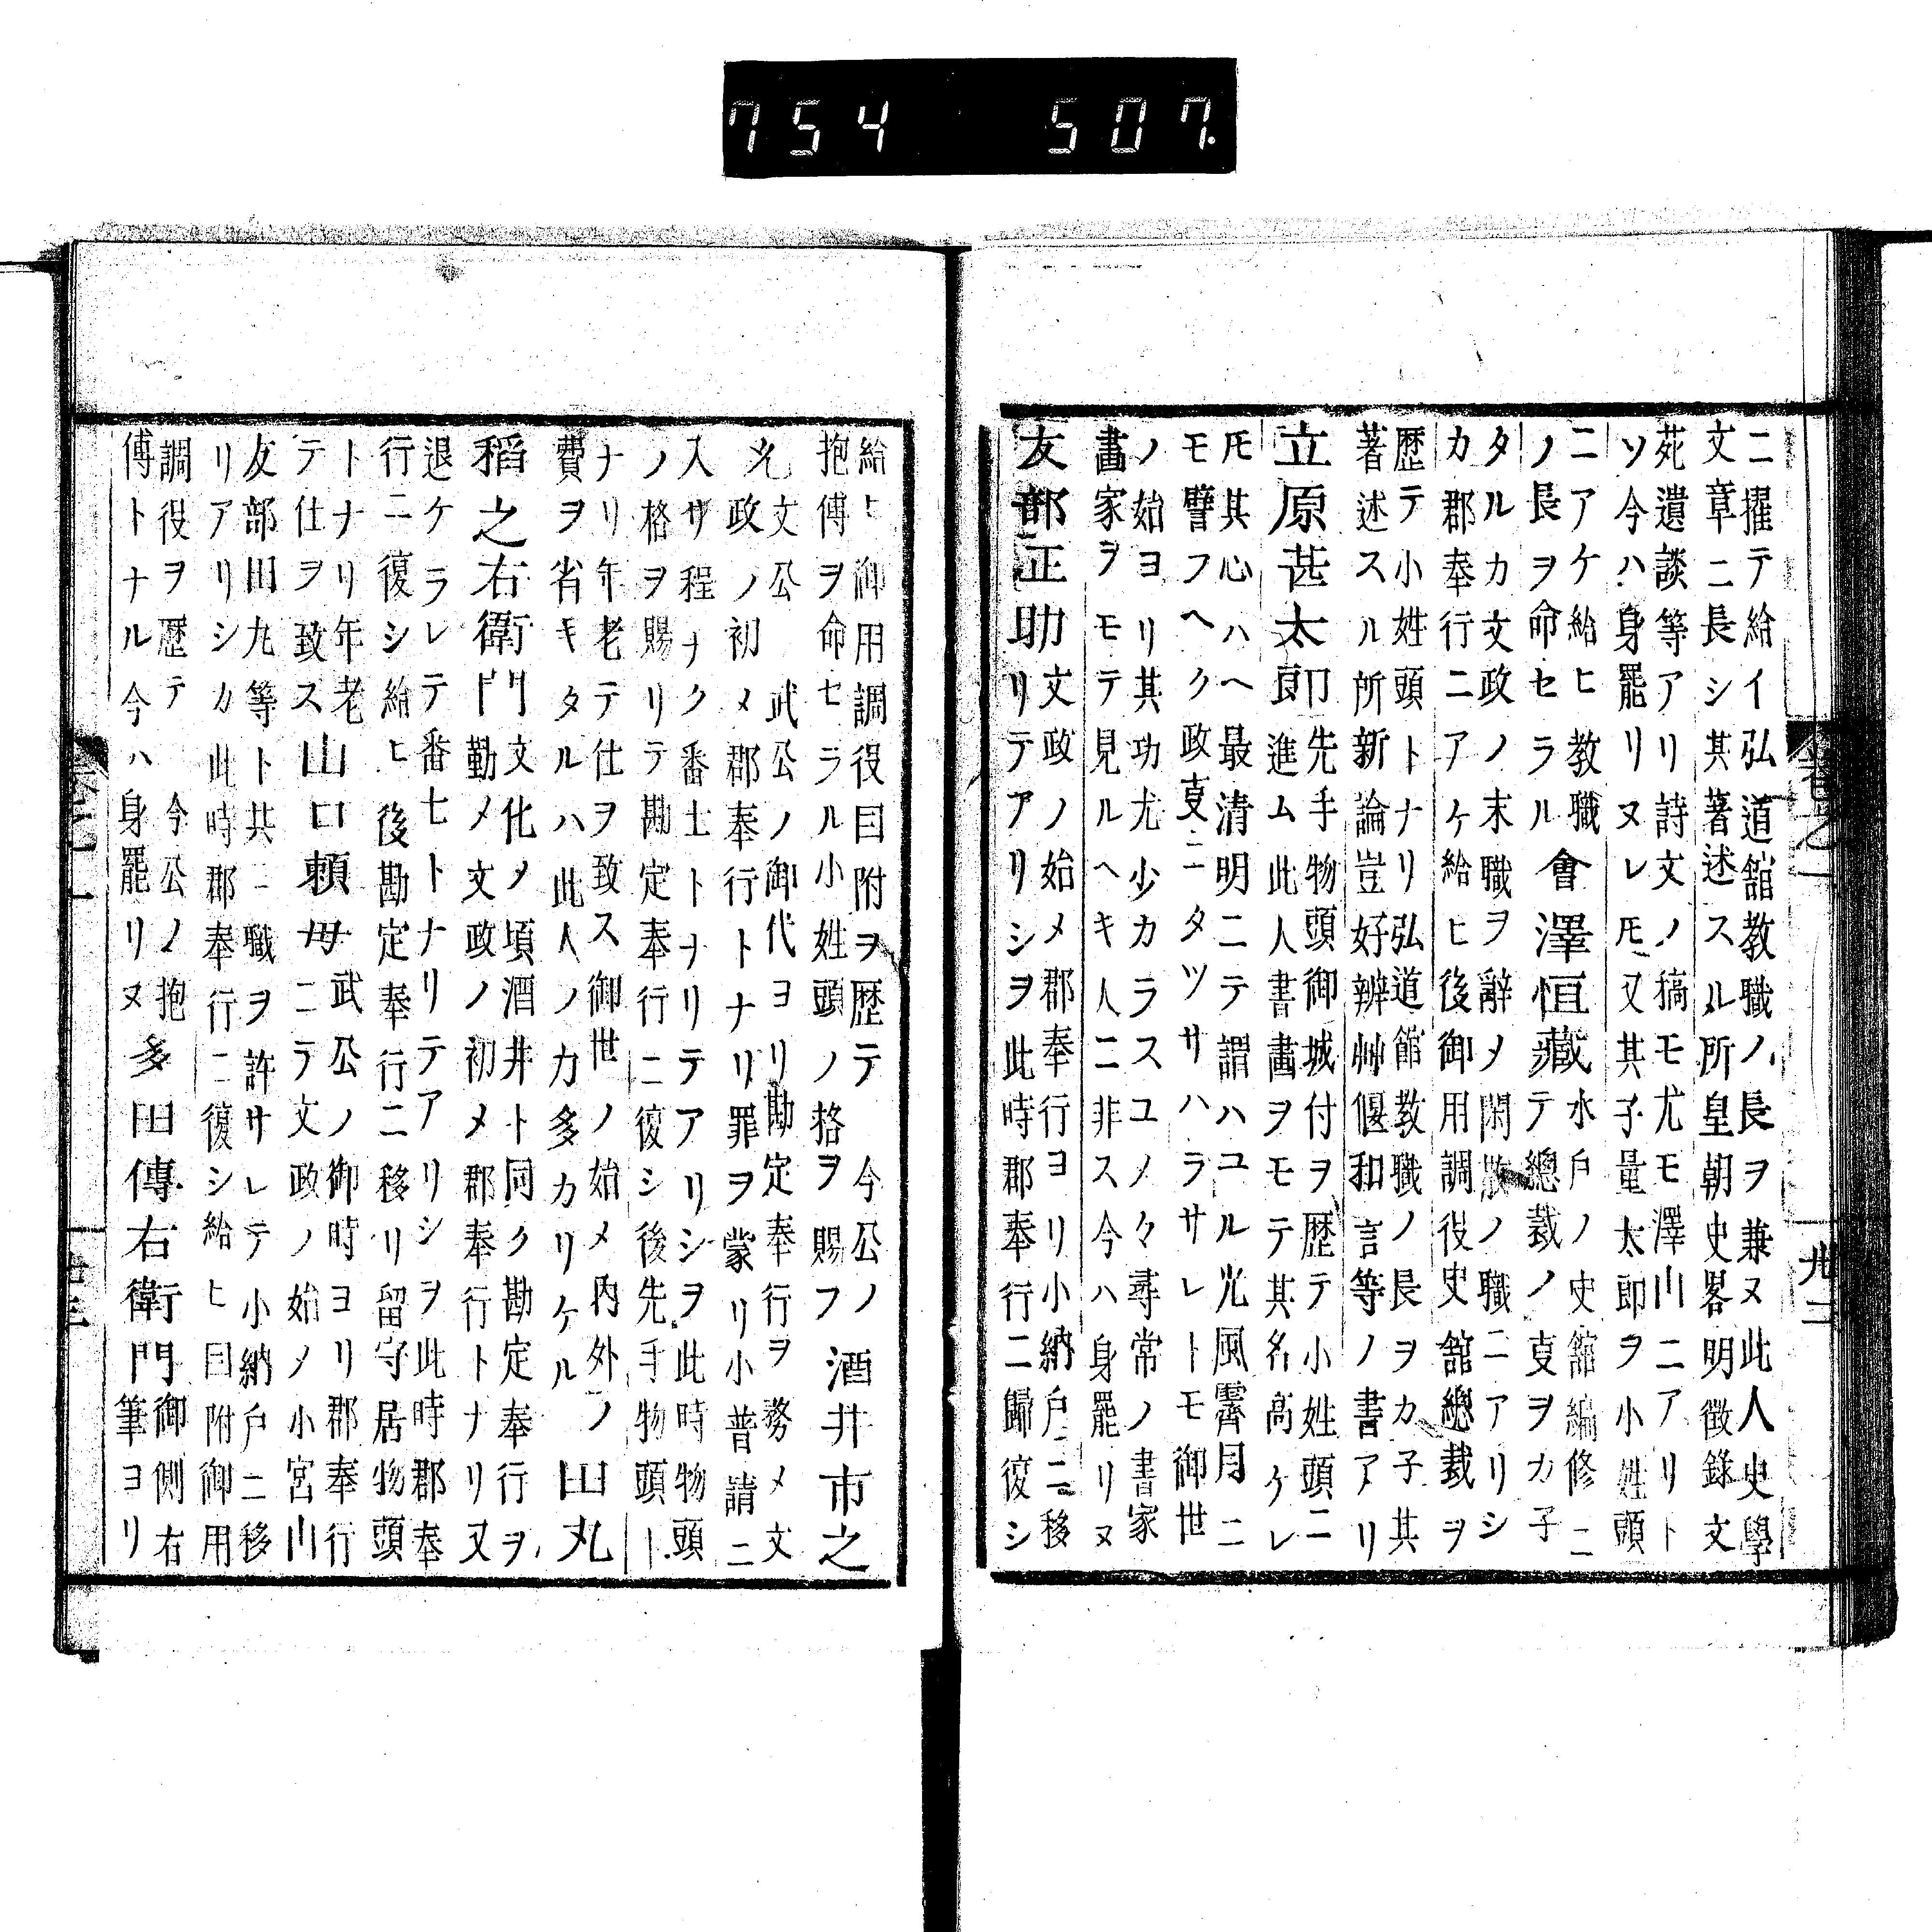 754 507
ニ擢テ給イ弘道舘教職ノ長ヲ兼ヌ此人史學
文章ニ長シ其著述スル所皇朝史畧明徴錄文
苑遺談等アリ詩文ノ稿モ尤モ澤山ニアリト
ソ今ハ身罷リヌレ𪜈又其子量太郎ヲ小姓頭
ニアケ給ヒ教職
ノ長ヲ命セラル
會澤恒藏
水戸ノ史舘編修ニ
テ總裁ノ㕝ヲカ子
タルカ文政ノ末職ヲ辭メ閑散ノ職ニアリシ
カ郡奉行ニアケ給ヒ後御用調役史舘總裁ヲ
歴テ小姓頭トナリ弘道館教職ノ長ヲカ子其
著述スル所新論豈好辨艸偃和言等ノ書アリ
立原甚太郎
先手物頭御城付ヲ歴テ小姓頭ニ
進ム此人書畵ヲモテ其名高ケレ
𪜈其心ハヘ最清明ニテ謂ハユル光風霽月ニ
モ譬フヘク政㕝ニタツサハラサレトモ御世
ノ始ヨリ其功尤少カラスユメ々尋常ノ書家
畵家ヲモテ見ルヘキ人ニ非ス今ハ身罷リヌ
友部正助
文政ノ始メ郡奉行ヨリ小納戸ニ移
リテアリシヲ此時郡奉行ニ歸復シ
卷之一
卅二
給ヒ御用調役曰附ヲ歴テ 今公ノ
抱傅ヲ命セラル小姓頭ノ格ヲ賜フ
酒井市之
允
文公 武公ノ御代ヨリ勘定奉行ヲ務メ文
政ノ初メ郡奉行トナリ罪ヲ蒙リ小普請ニ
入サ程ナク番士トナリテアリシヲ此時物頭
ノ格ヲ賜リテ勘定奉行ニ復シ後先手物頭ト
ナリ年老テ仕ヲ致ス御世ノ始メ内外ノ
費ヲ省キタルハ此人ノ力多カリケル
田丸
稻之右衛門
文化ノ頃酒井ト同ク勘定奉行ヲ
勤メ文政ノ初メ郡奉行トナリ又
退ケラレテ番士トナリテアリシヲ此時郡奉
行ニ復シ給ヒ後勘定奉行ニ移リ留守居物頭
トナリ年老
テ仕ヲ致ス
山口頼母
武公ノ御時ヨリ郡奉行
ニテ文政ノ始メ小宮山
友部田丸等ト共ニ職ヲ許サレテ小納戸ニ移
リアリシカ此時郡奉行ニ復シ給ヒ曰附御用
調役ヲ歴テ 今公ノ抱
傅トナル今ハ身罷リヌ
多田傳右衛門
御側右
筆ヨリ